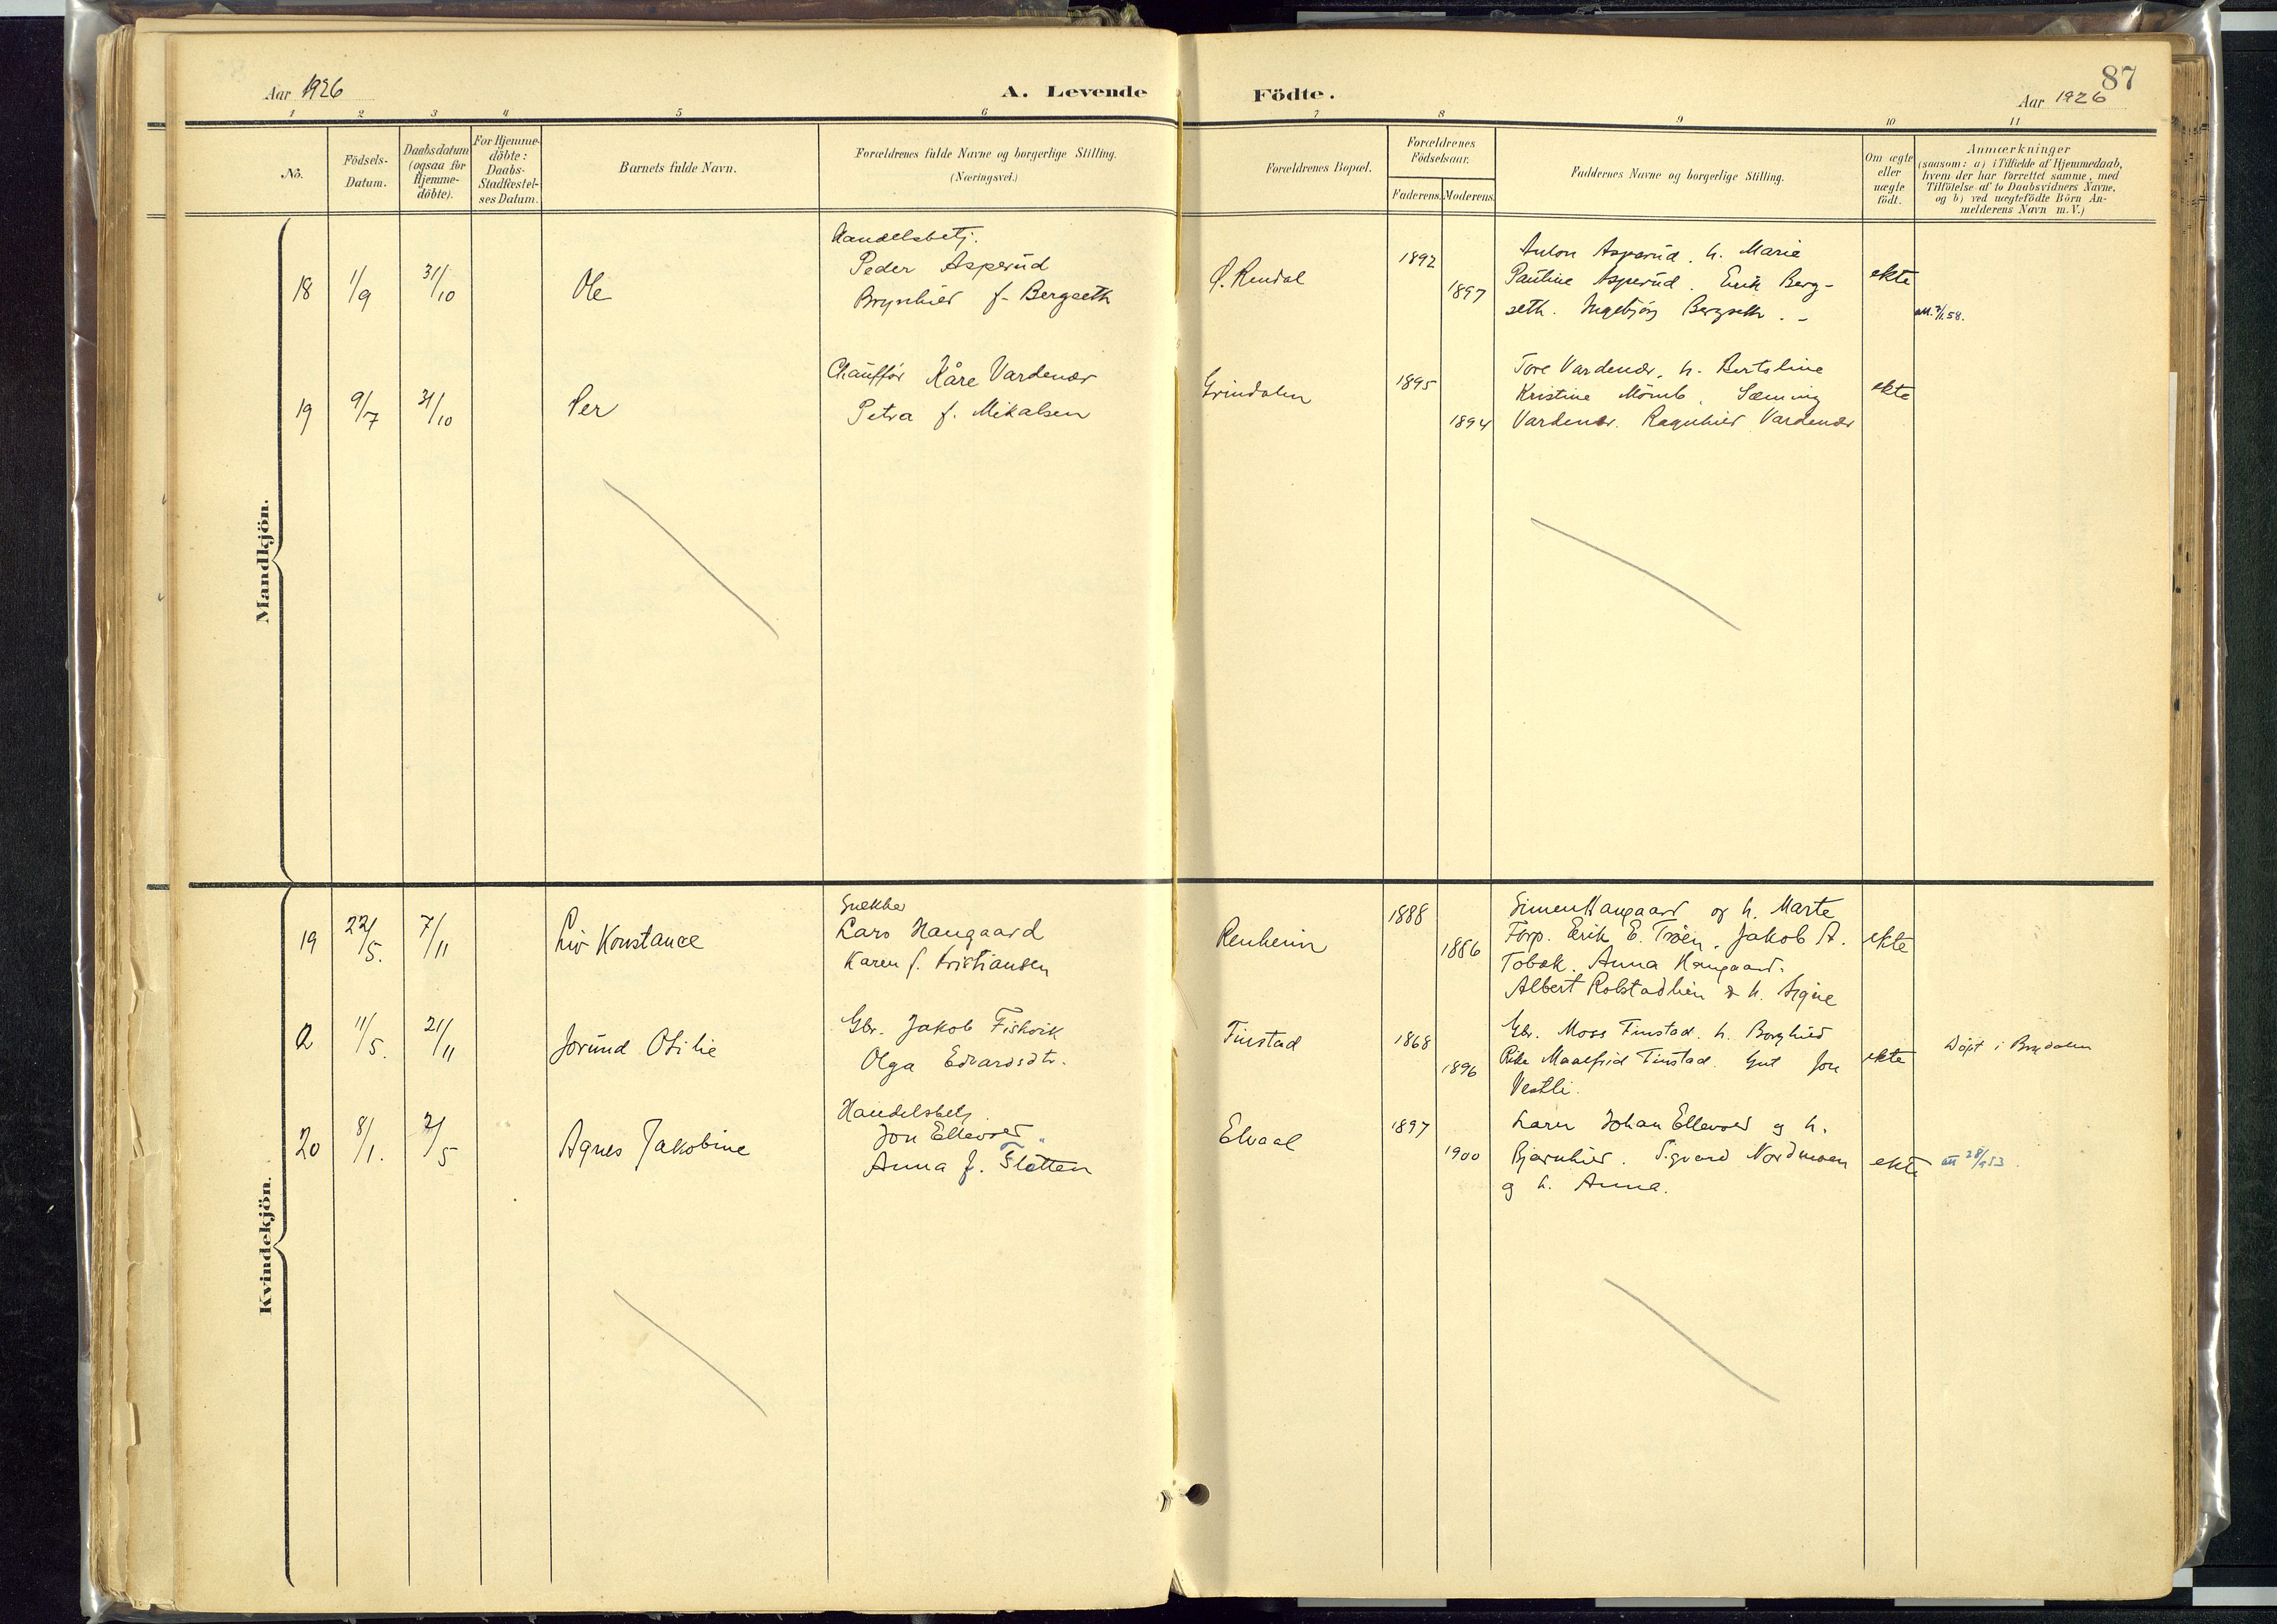 87
Aar 1926
A. Levende Födte.
Aar 1926
1 2 3 4 5 6 7 8 9 10 11
No.
Födsels-
Datum.
Daabsdatum
(ogsaa for
Hjemme-
döbte).
For Hjemme-
döbte:
Daabs-
Stadfæstel-
ses Datum.
Barnets fulde Navn.
Forældrenes fulde Navne og borgerlige Stilling.
(Næringsvei.)
Forældrenes Bopæl.
Forældrenes
Födselsaar.
Faderens. Moderens.
Faddernes Navne og borgerlige Stilling.
Om ægte
eller
uægte
födt.
Anmærkninger
(saasom: a) i Tilfælde af Hjemmedaab,
hvem der har forrettet samme, med
Tilföielse af to Daabsvidners Navne,
og b) ved uægtefödte Börn An-
melderens Navn m.V.)
Mandkjön.
18 1/9 31/10 Ole
Handelsbetj.
Peder Asperud
Brynhild f. Bergseth
Ø. Rendal
1892
1897
Anton Asperud. h. Marie
Pauline Asperud. Erik Berg-
seth. Ingebjörg Bergseth. -
ekte
att. 7/1.58.
19 9/7 31/10 Per
Chaufför Kåre Vardenær
Petra f. Mikalsen
Grindalen
1895
1894
Tore Vardenær. h. Bertoline
Kristine Mömb. Sæming
Vardenær. Ragnhild Vardenær
ekte
Kvindekjön.
19 22/5. 7/11 Liv Konstance
Snekker
Lars Haugaard
Karen f. Kristiansen
Renheim
1888
1886
Simen Haugaard og h. Marte
Forp. Erik E. Trøen. Jakob A.
Tobak. Anna Haugaard.
Albert Kolstadlien & h. Signe
ekte
Q 11/5. 21/11 Jorund Otilie
Gbr. Jakob Fiskvik
Olga Edvardsdtr.
Finstad
1868
1896
Gbr. Moss Finstad. h. Borghild
Pike Maalfrid Finstad. Gut Jon
Vestli.
ekte
Döpt i Brydalen
20 8/1. 2/5 Agnes Jakobine
Handelsbetj.
Jon Ellevold
Anna f. Slåtten
Elvaal
1897
1900
Lærer Johan Ellevold og h.
Bjarnhild. Sigvard Nordmoen
og h. Anna.
ekte
att 28/9 53.